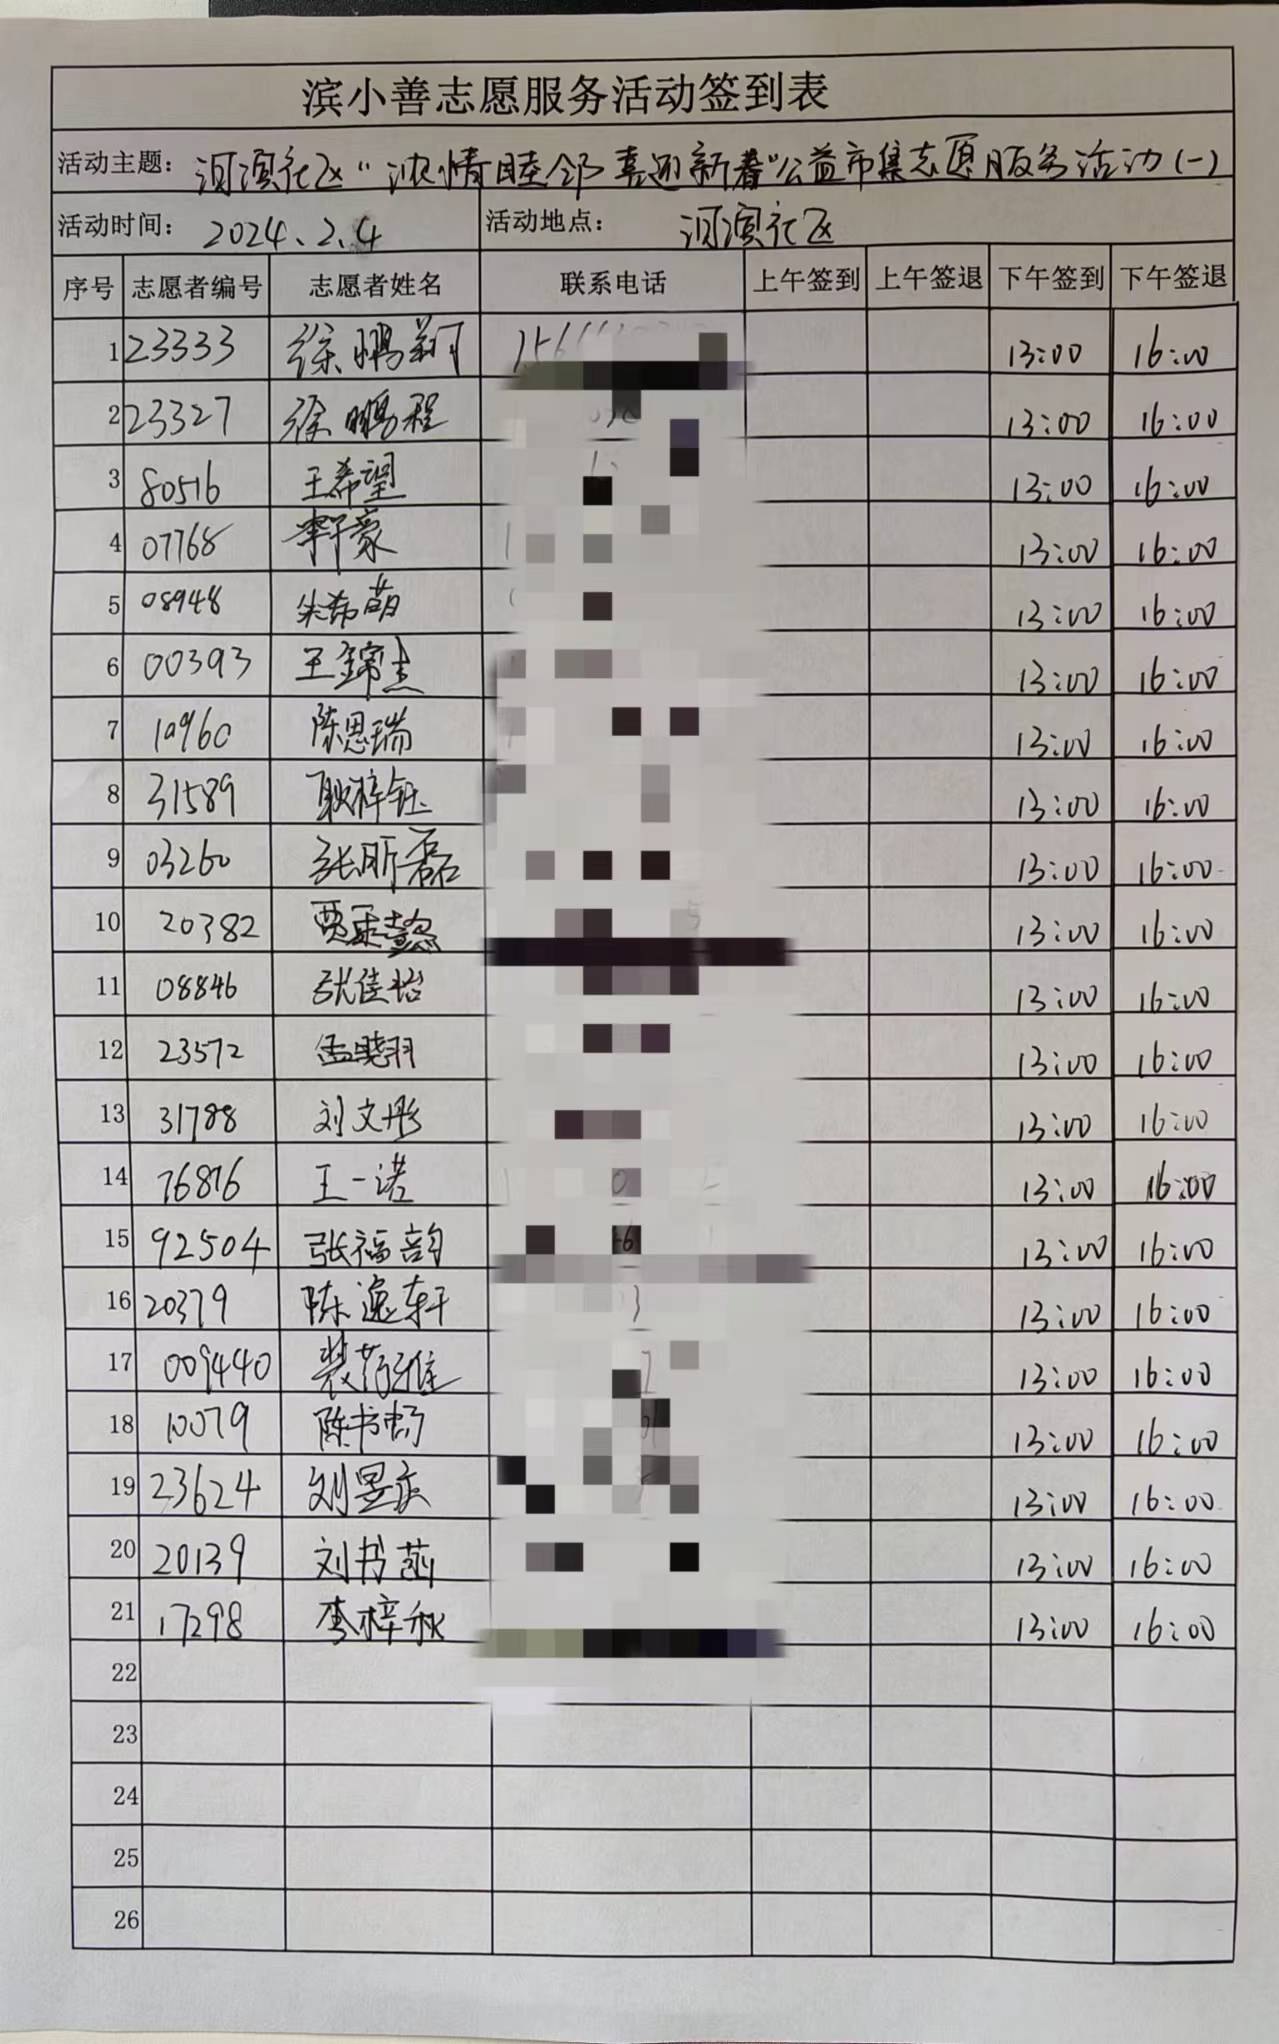 滨小善志愿服务活动签到表
活动主题： 河滨社区"浓情睦邻 喜迎新春"公益市集志愿服务活动(一)
活动时间： 2024.2.4 活动地点： 河滨社区
序号 志愿者编号 志愿者姓名 联系电话 上午签到 上午签退 下午签到 下午签退
1 23333 徐鹏翔 13:00 16:00
2 23327 徐鹏程 13:00 16:00
3 80516 王希望 13:00 16:00
4 07768 13:00 16:00
5 08948 朱希萌 13:00 16:00
6 00393 王锦杰 13:00 16:00
7 10960 陈思瑞 13:00 16:00
8 31589 耿梓钰 13:00 16:00
9 03260 张昕磊 13:00 16:00
10 20382 13:00 16:00
11 08846 张佳怡 13:00 16:00
12 23572 孟晓羽 13:00 16:00
13 31788 刘文彤 13:00 16:00
14 76876 王一诺 13:00 16:00
15 92504 张福韵 13:00 16:00
16 20379 陈逸轩 13:00 16:00
17 009440 13:00 16:00
18 10079 陈书畅 13:00 16:00
19 23624 刘昱辰 13:00 16:00
20 20139 刘书菡 13:00 16:00
21 17298 李梓秋 13:00 16:00
22
23
24
25
26